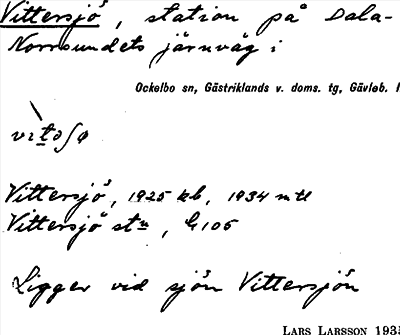 Vittersjö, station på Dala-
Norrsundets järnväg i
Ockelbo sn, Gästriklands v. doms. tg, Gävleb. l
Vittersjö, 1925 kb, 1934 mtl
Vittersjö stn, G 105
Ligger vid sjön Vittersjön
LARS LARSSON 1935